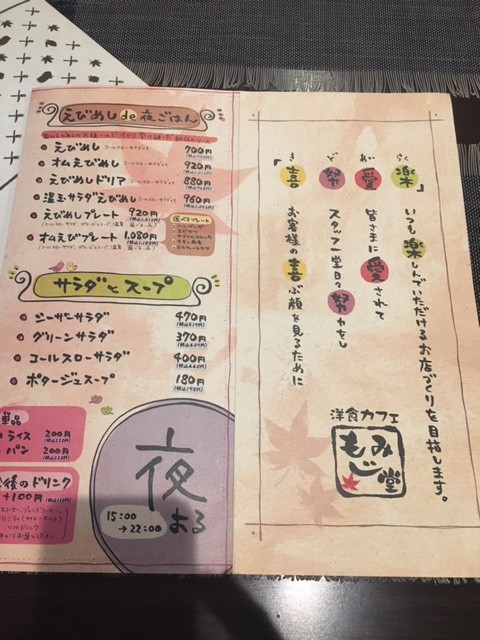 えびめし de 夜ごはん
えびめし コールスローサラダつき 700円
オムえびめし コールスローサラダつき 920円
えびめしドリア コールスローサラダつき 880円
温玉サラダえびめし 960円
えびめしプレート 920円
オムえびめしプレート 1,080円
選べるプレート
サラダとスープ
シーザーサラダ 470円
グリーンサラダ 370円
コールスローサラダ 400円
ポタージュスープ 180円
単品
ライス 200円
パン 200円
後のドリンク
+100円
夜
よる
15:00
→22:00
「喜 努 愛 楽」
き ど あい らく
いつも楽しんでいただけるお店づくりを目指します。
皆さまに愛されて
スタッフ一堂日々努力をし
お客様の喜ぶ顔を見るために
洋食カフェ
もみじ堂